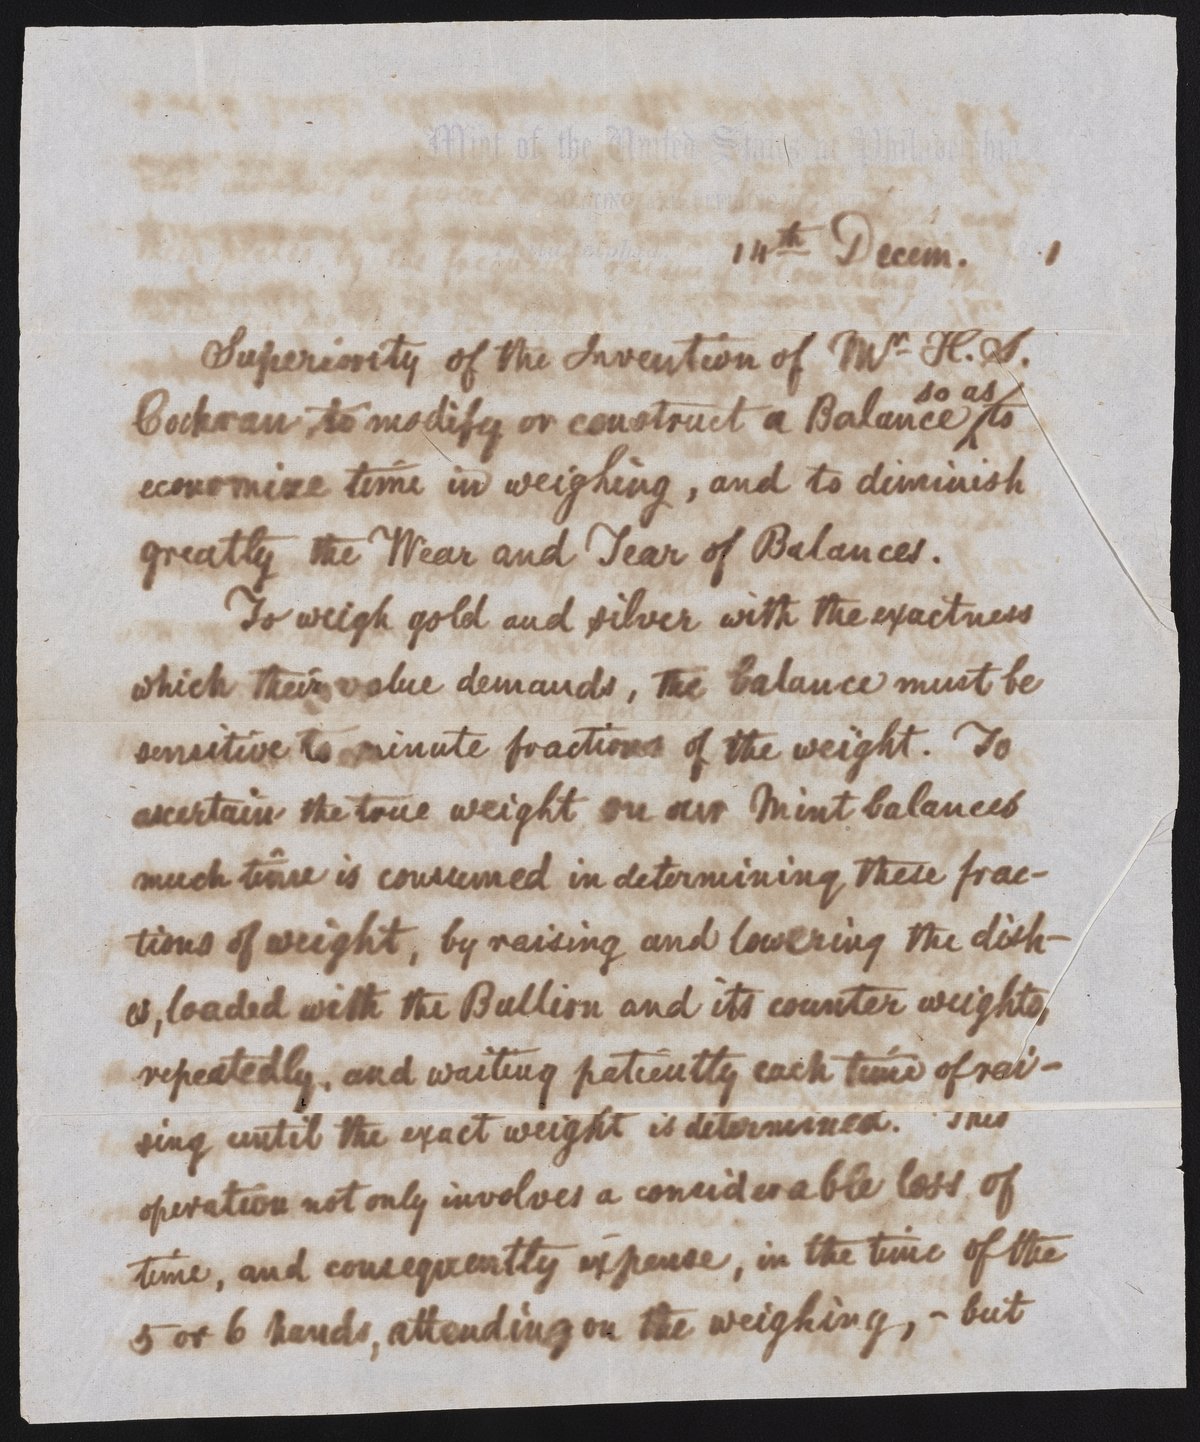 Mint of the United States at Philadelphia
14th Decem. 1
Superiority of the Invention of Mr. H. S.
so as
Cochran, to modify or construct a Balance, to
economize time in weighing, and to diminish
greatly the Wear and Tear of Balances.
To weigh gold and silver with the exactness
which their value demands, the balance must be
sensitive to minute fractions of the weight. To
ascertain the true weight on our Mint balances
much time is consumed in determining these frac-
tions of weight, by raising and lowering the dish-
es, loaded with the Bullion and its counter weights,
repeatedly, and waiting patiently each time of rai-
sing until the exact weight is determined. This
operation not only involves a considerable loss of
time, and consequently expense, in the time of the
5 or 6 hands, attending on the weighing, - but